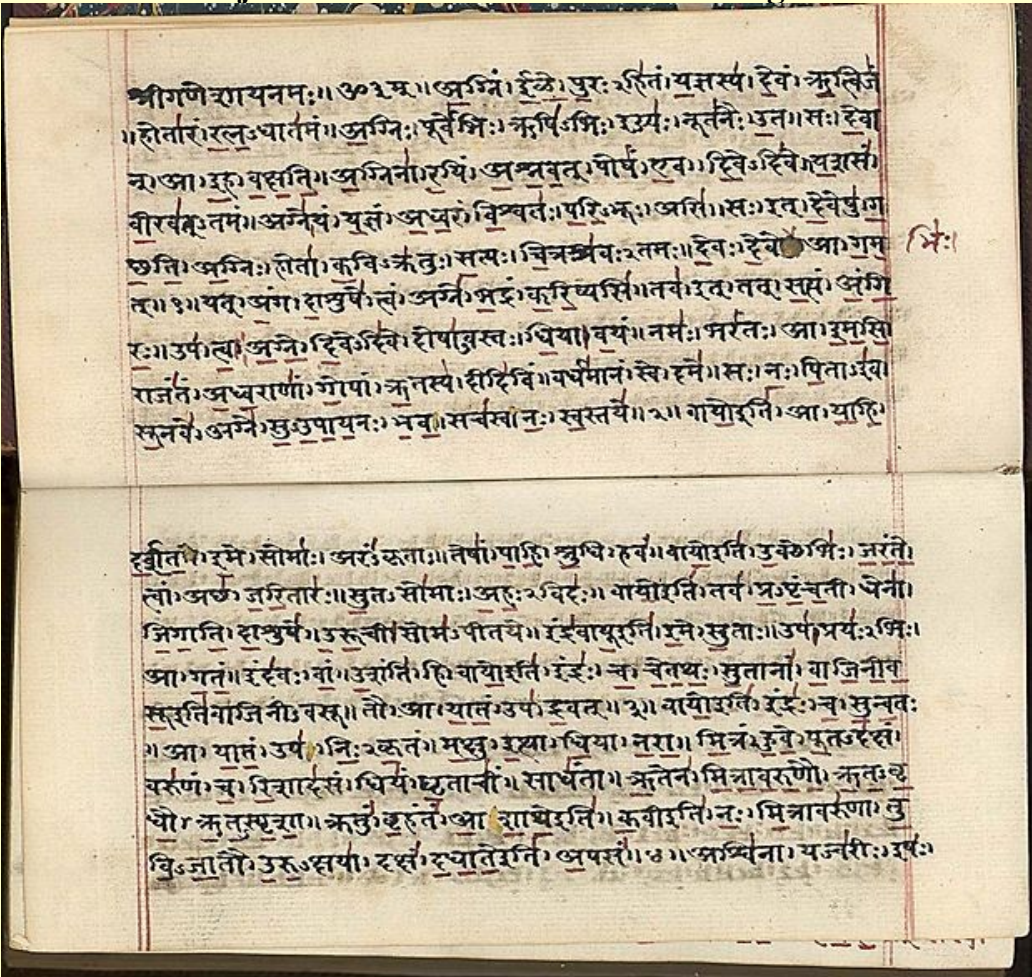 श्रीगणेशायनमः॥ ॐ३म्॥ अ॒ग्निं। ई॒ळे॒। पु॒रःऽहि॑तं। य॒ज्ञस्य॑। दे॒वं। ऋ॒त्विजं॑
॥ होता॑रं। र॒त्न॒ऽधात॑मं॥ अ॒ग्निः। पूर्वे॑भिः। ऋषि॑ऽभिः। ईड्यः॑। नूत॑नैः। उ॒त॥ सः। दे॒वा
न्। आ। इ॒ह। व॒क्ष॒ति॒॥ अ॒ग्निना॑। र॒यिं। अ॒श्न॒व॒त्। पोषं॑। ए॒व। दि॒वेऽदि॑वे॥ य॒शसं॑
वी॒रव॑त्ऽतमं॥ अग्ने॑। यं। य॒ज्ञं। अ॒ध्व॒रं। वि॒श्वतः॑। प॒रि॒ऽभूः। असि॑॥ सः। इत्। दे॒वेषु॑। ग॒
च्छ॒ति॒। अ॒ग्निः। होता॑। क॒विऽक्र॑तुः। स॒त्यः। चि॒त्रश्र॑वःऽतमः॥ दे॒वः। दे॒वे आ। ग॒म॒
भिः॑।
त्॥ १॥ यत्। अं॒ग। दा॒शुषे॑। त्वं। अग्ने॑। भ॒द्रं। क॒रि॒ष्यसि॑॥ तव॑। इत्। तत्। स॒त्यं। अं॒गि॒
रः॒॥ उप॑। त्वा॒। अ॒ग्ने॒। दि॒वेऽदि॑वे। दोषा॑ऽवस्तः। धि॒या। व॒यं॥ नमः॑। भरं॑तः। आ। इ॒म॒सि॒
राजं॑तं। अ॒ध्व॒राणां॑। गो॒पां। ऋ॒तस्य॑। दीदि॑विं॥ वर्ध॑मानं। स्वे। दमे॑॥ सः। नः॒। पि॒ताऽइ॑व।
सू॒नवे॑। अग्ने॑। सु॒ऽउ॒पा॒य॒नः। भ॒व॒॥ सच॑स्व। नः॒। स्व॒स्तये॑॥ २॥ वायो॒इति॑। आ। या॒हि॒
द॒र्श॒त॒। इ॒मे। सोमाः॑। अरं॑ऽकृताः॥ तेषां॑। पा॒हि॒। श्रु॒धि। हवं॑॥ वायो॒इति॑। उ॒क्थेभिः॑। ज॒रं॒ते॒
त्वां। अच्छ॑। ज॒रि॒तारः॑॥ सु॒तऽसो॑माः। अ॒हः॒ऽविदः॑॥ वायो॒इति॑। तव॑। प्र॒ऽपृं॒च॒ती। धेना॑।
जि॒गा॒ति॒। दा॒शुषे॑॥ उ॒रू॒ची। सोम॑ऽपीतये॥ इंद्र॑वायू॒इति॑। इ॒मे। सु॒ताः॥ उप॑। प्रयः॑ऽभिः।
आ। ग॒तं॒॥ इंद॑वः। वां॒। उ॒शंति॑। हि। वायो॒इति॑। इंद्रः॑। च॒। चे॒त॒थः॒। सु॒तानां॑। वा॒जि॒नी॒व॒
सू॒इति॑वाजिनीऽवसू॥ तौ। आ। या॒तं॒। उप॑। द्र॒वत्॥ ३॥ वायो॒इति॑। इंद्रः॑। च॒। सु॒न्व॒तः
॥ आ। या॒तं॒। उप॑। निः॒ऽकृ॒तं॥ म॒क्षु। इ॒त्था। धि॒या। न॒रा॒॥ मि॒त्रं। हु॒वे॒। पू॒तऽद॑क्षं।
वरु॑णं। च॒। रि॒शाद॑सं। धियं॑। घृ॒ताचीं॑। साधं॑ता॥ ऋ॒तेन॑। मि॒त्रा॒व॒रु॒णौ॒। ऋ॒त॒ऽवृ॒
धौ॒। ऋ॒त॒ऽस्पृ॒शा॒॥ क्रतुं॑। बृ॒हंतं॑। आ॒शा॒थे॒इति॑। क॒वीइति॑। नः॒। मि॒त्रावरु॑णा। तु॒
वि॒ऽजा॒तौ। उ॒रु॒ऽक्षया॑। दक्षं॑। द॒धा॒ते॒इति॑। अ॒पसं॑॥ ४॥ अश्वि॑ना। यज्व॑रीः। इषः॑।